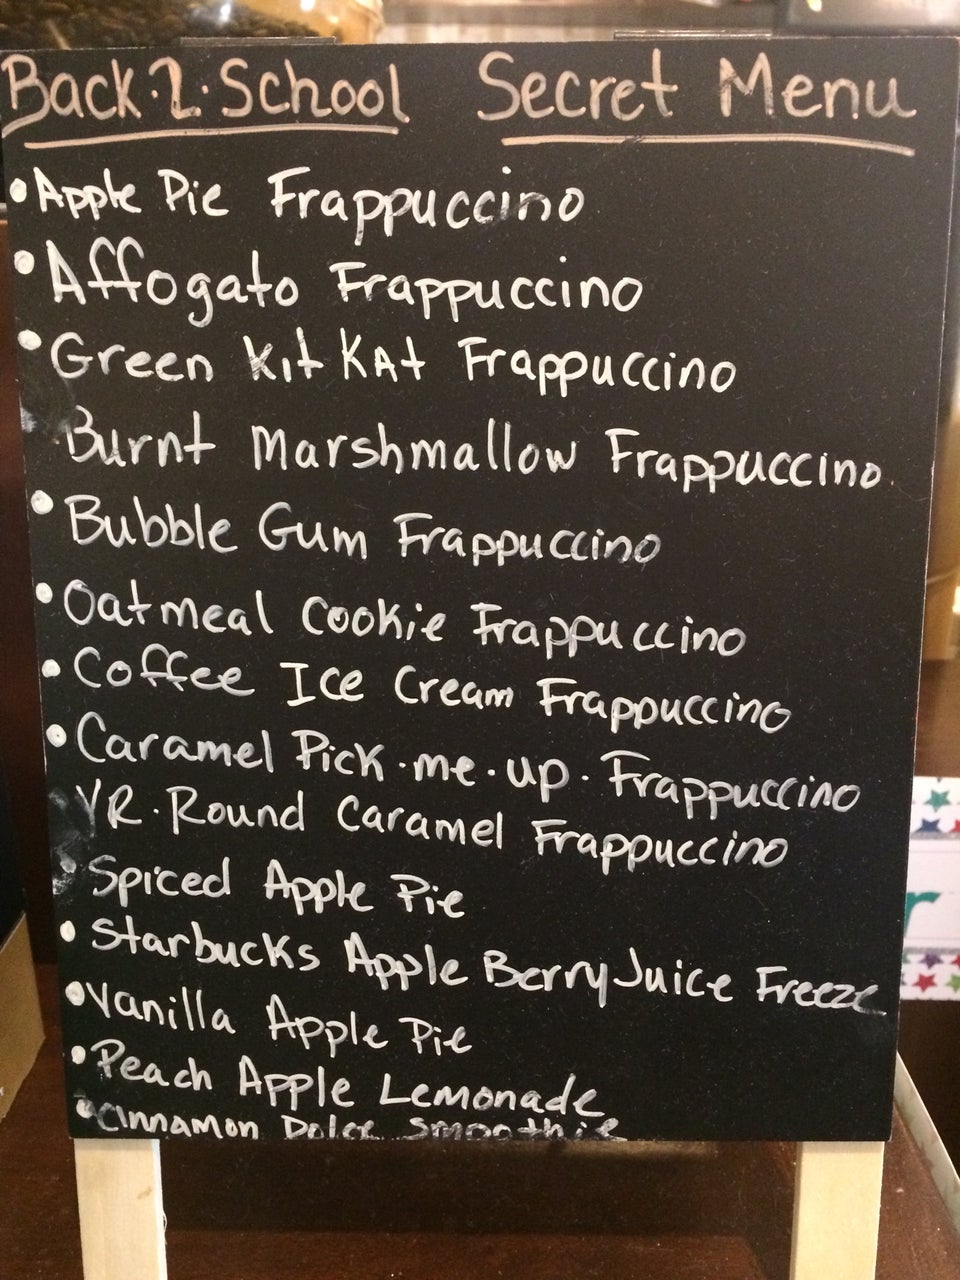 Back·2·School Secret Menu
• Apple Pie Frappuccino
• Affogato Frappuccino
• Green Kit KAt Frappuccino
Burnt Marshmallow Frappuccino
• Bubble Gum Frappuccino
• Oatmeal Cookie Frappuccino
• Coffee Ice Cream Frappuccino
• Caramel Pick·me·up· Frappuccino
YR·Round Caramel Frappuccino
• Spiced Apple Pie
• Starbucks Apple Berry Juice Freeze
• Vanilla Apple Pie
• Peach Apple Lemonade
• Cinnamon Dolce Smoothie